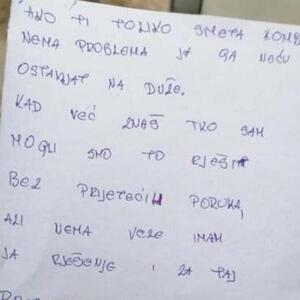 AKO TI TOLIKO SMETA
NEMA PROBLEMA JA GA NEĆU
OSTAVJAT NA DUŽE.
KAD VEĆ ZNAŠ TKO SAM
MOGLI SMO TO
BEZ PRIJETEĆIH PORUKA,
ALI NEMA VEZE IMAM
JA RJEŠENJE I ZA TAJ